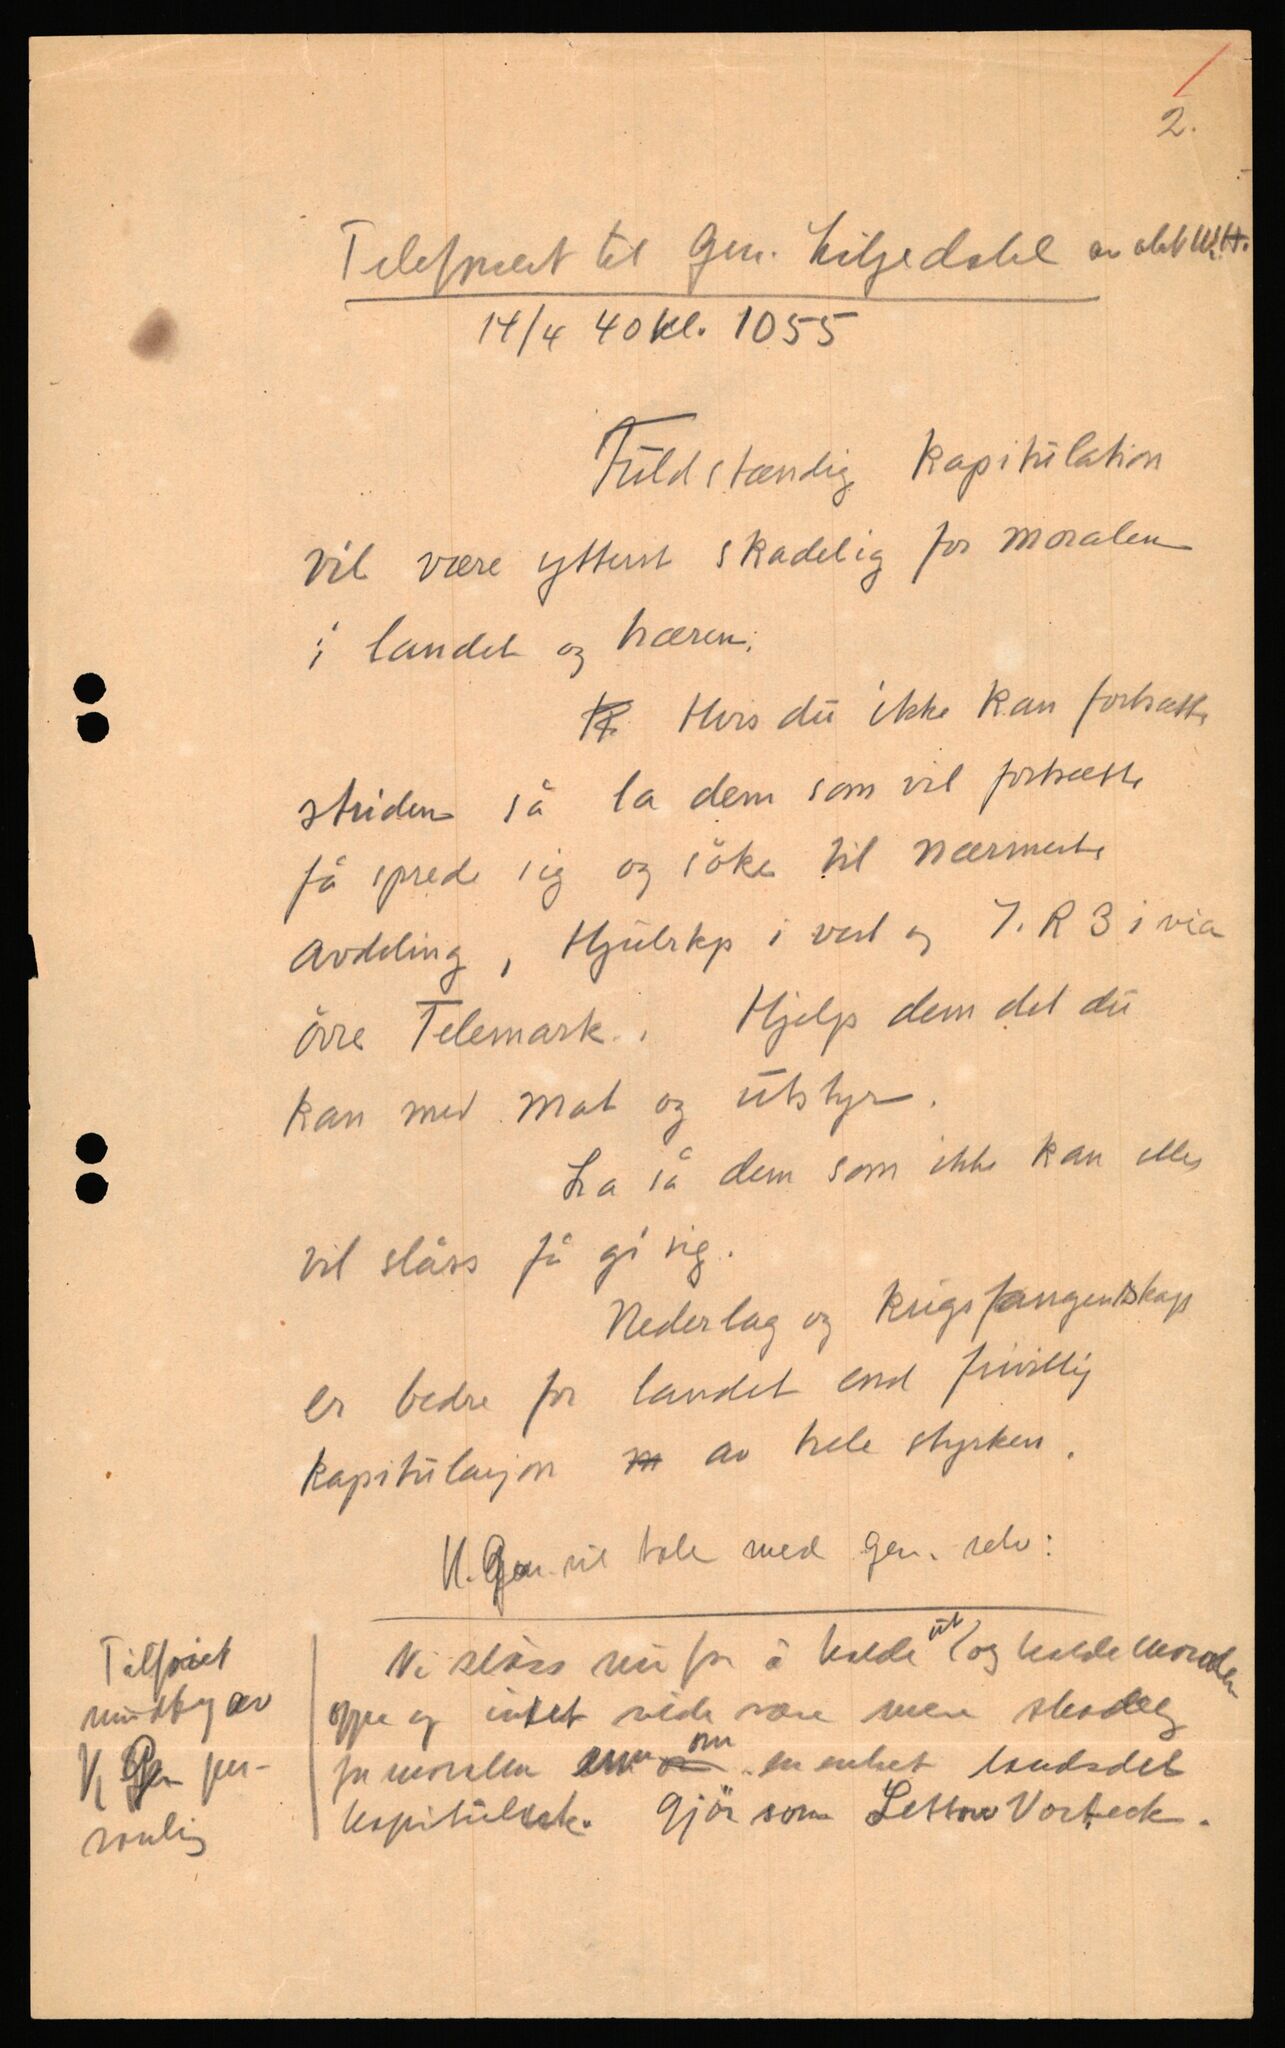 2.
Telefonert til Gen. Liljedahl av obl W.H.
14/4 40 kl. 1055
Fuldstændig kapitulation
vil være ytterst skadelig for moralen
i landet og hæren.
Hvis du ikke kan fortsætte
striden så la dem som vil fortsætte
få sprede sig og søke til nærmeste
avdeling, Hjulskp i vest og I. R 3 i via
övre Telemark. Hjelp dem det du
kan med mat og utstyr.
La så dem som ikke kan eller
vil slåss få gi sig.
Nederlag og krigsfangenskap
er bedre for landet end frivillig
kapitulasjon av hele styrken.
K. Gen. vil tale med gen. selv:
Vi slåss nu for å holde ut og holde moralen
oppe og intet vilde være mere skadelig
for moralen enn om en enkel landsdel
kapitulerte. Gjör som Lettow Vorbeck.
Tilföiet
mundtlig av
K Gen per-
sonlig